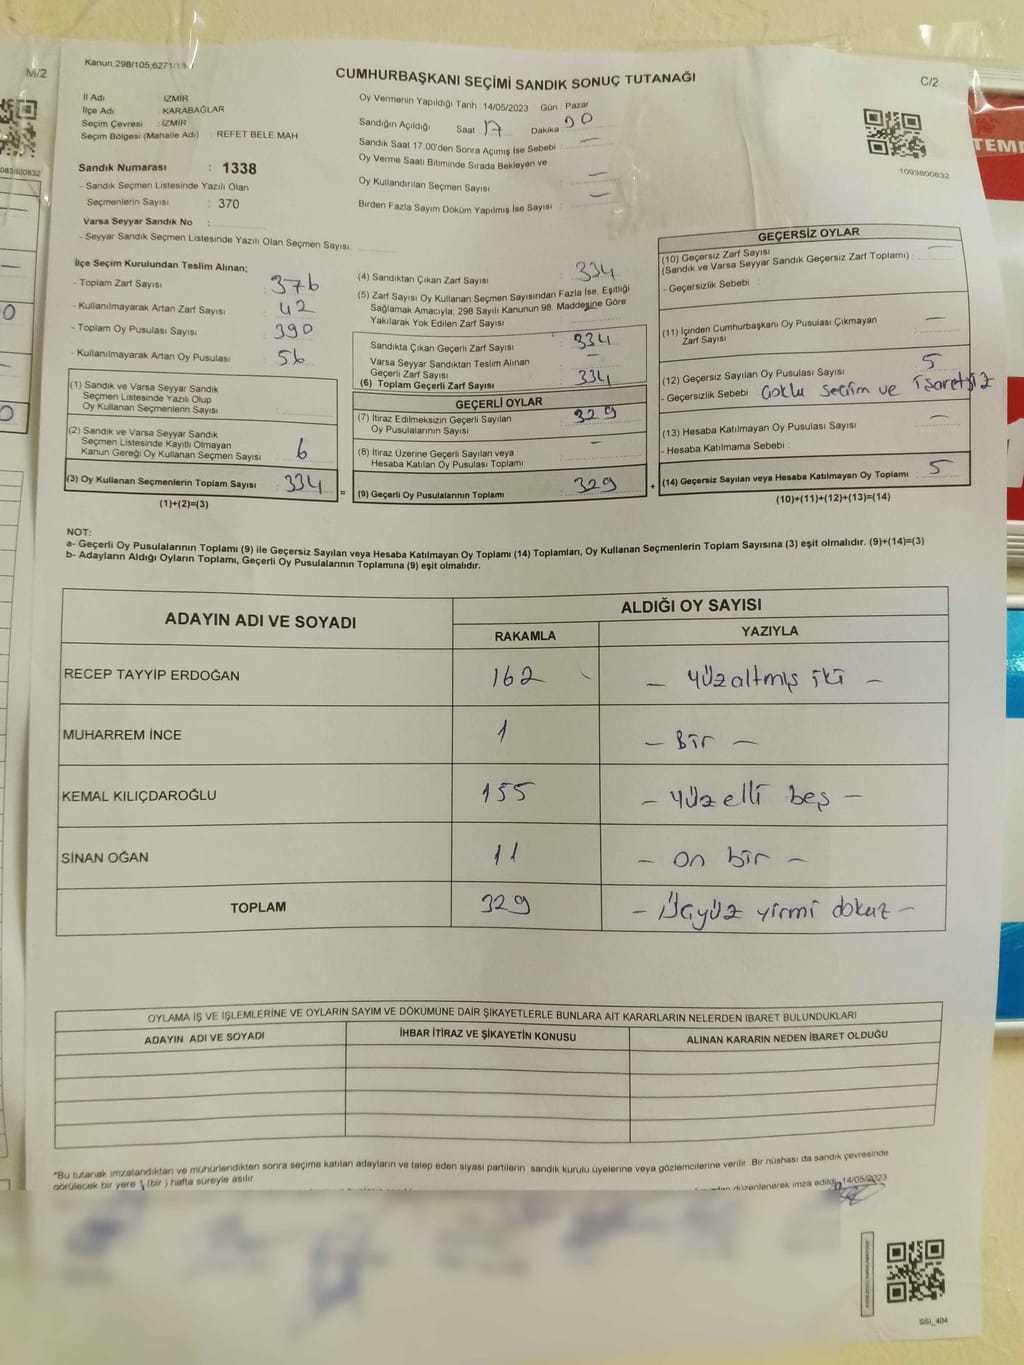 M/2
Kanun:298/105;6271/
CUMHURBAŞKANI SEÇİMİ SANDIK SONUÇ TUTANAĞI
C/2
İl Adı : İZMİR
İlçe Adı : KARABAĞLAR
Seçim Çevresi : İZMİR
Seçim Bölgesi (Mahalle Adı) : REFET BELE MAH
Sandık Numarası : 1338
- Sandık Seçmen Listesinde Yazılı Olan
Seçmenlerin Sayısı : 370
Varsa Seyyar Sandık No :
- Seyyar Sandık Seçmen Listesinde Yazılı Olan Seçmen Sayısı:
Oy Vermenin Yapıldığı Tarih : 14/05/2023 Gün : Pazar
Sandığın Açıldığı Saat 17 Dakika 00
Sandık Saat 17.00'den Sonra Açımış İse Sebebi : —
Oy Verme Saati Bitiminde Sırada Bekleyen ve
Oy Kullandırılan Seçmen Sayısı : —
Birden Fazla Sayım Döküm Yapılmış İse Sayısı : —
1093800832
TEM
İlçe Seçim Kurulundan Teslim Alınan;
- Toplam Zarf Sayısı : 376
- Kullanılmayarak Artan Zarf Sayısı : 42
- Toplam Oy Pusulası Sayısı : 390
- Kullanılmayarak Artan Oy Pusulası : 56
(1) Sandık ve Varsa Seyyar Sandık
Seçmen Listesinde Yazılı Olup
Oy Kullanan Seçmenlerin Sayısı :
(2) Sandık ve Varsa Seyyar Sandık
Seçmen Listesinde Kayıtlı Olmayan
Kanun Gereği Oy Kullanan Seçmen Sayısı : 6
(3) Oy Kullanan Seçmenlerin Toplam Sayısı : 334
(1)+(2)=(3)
(4) Sandıktan Çıkan Zarf Sayısı : 334
(5) Zarf Sayısı Oy Kullanan Seçmen Sayısından Fazla İse, Eşitliği
Sağlamak Amacıyla, 298 Sayılı Kanunun 98. Maddesine Göre
Yakılarak Yok Edilen Zarf Sayısı :
Sandıkta Çıkan Geçerli Zarf Sayısı : 334
Varsa Seyyar Sandıktan Teslim Alınan
Geçerli Zarf Sayısı : —
(6) Toplam Geçerli Zarf Sayısı : 334
GEÇERLİ OYLAR
(7) İtiraz Edilmeksizin Geçerli Sayılan
Oy Pusulalarının Sayısı : 329
(8) İtiraz Üzerine Geçerli Sayılan veya
Hesaba Katılan Oy Pusulası Toplamı : —
= (9) Geçerli Oy Pusulalarının Toplamı : 329
GEÇERSİZ OYLAR
(10) Geçersiz Zarf Sayısı
(Sandık ve Varsa Seyyar Sandık Geçersiz Zarf Toplamı) : —
- Geçersizlik Sebebi :
(11) İçinden Cumhurbaşkanı Oy Pusulası Çıkmayan
Zarf Sayısı : —
(12) Geçersiz Sayılan Oy Pusulası Sayısı : 5
- Geçersizlik Sebebi : Çoklu seçim ve işaretsiz
(13) Hesaba Katılmayan Oy Pusulası Sayısı : —
- Hesaba Katılmama Sebebi :
+ (14) Geçersiz Sayılan veya Hesaba Katılmayan Oy Toplamı : 5
(10)+(11)+(12)+(13)=(14)
NOT:
a- Geçerli Oy Pusulalarının Toplamı (9) ile Geçersiz Sayılan veya Hesaba Katılmayan Oy Toplamı (14) Toplamları, Oy Kullanan Seçmenlerin Toplam Sayısına (3) eşit olmalıdır. (9)+(14)=(3)
b- Adayların Aldığı Oyların Toplamı, Geçerli Oy Pusulalarının Toplamına (9) eşit olmalıdır.
ADAYIN ADI VE SOYADI
ALDIĞI OY SAYISI
RAKAMLA YAZIYLA
RECEP TAYYİP ERDOĞAN 162 — Yüzaltmış iki —
MUHARREM İNCE 1 — Bir —
KEMAL KILIÇDAROĞLU 155 — Yüzelli beş —
SİNAN OĞAN 11 — on bir —
TOPLAM 329 — Üçyüz yirmi dokuz —
OYLAMA İŞ VE İŞLEMLERİNE VE OYLARIN SAYIM VE DÖKÜMÜNE DAİR ŞİKAYETLERLE BUNLARA AİT KARARLARIN NELERDEN İBARET BULUNDUKLARI
ADAYIN ADI VE SOYADI İHBAR İTİRAZ VE ŞİKAYETİN KONUSU ALINAN KARARIN NEDEN İBARET OLDUĞU
*Bu tutanak imzalandıktan ve mühürlendikten sonra seçime katılan adayların ve talep eden siyasi partilerin sandık kurulu üyelerine veya gözlemcilerine verilir. Bir nüshası da sandık çevresinde
görülecek bir yere 1 (bir) hafta süreyle asılır.
düzenlenerek imza edildi. 14/05/2023
SSİ_404